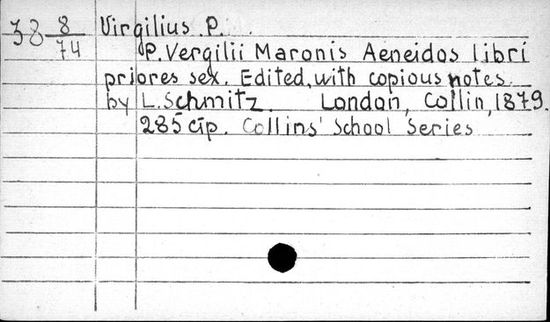 38 8/74 Virgilius P.
P. Vergilii Maronis Aeneidos libri
priores sex. Edited, with copious notes
by L. Schmitz. London, Collin, 1879.
285 cip. Collins' School Series